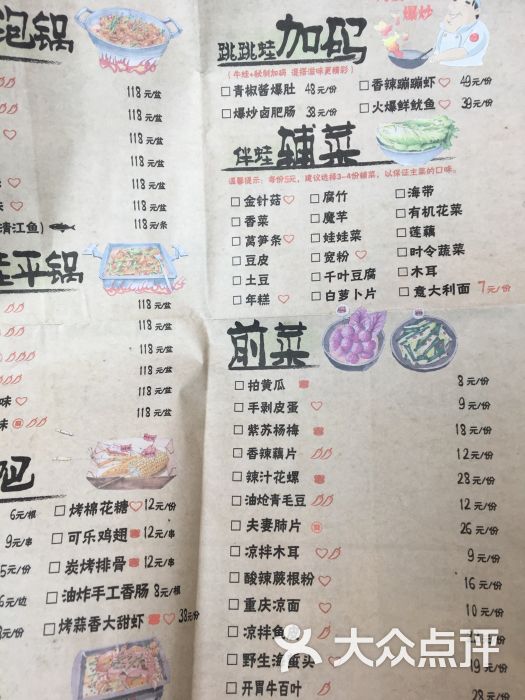 泡锅
118元/盆
118元/盆
118元/盆
118元/盆
118元/盆
清江鱼)
118元/条
蛙平锅
118元/盆
118元/盆
118元/盆
118元/盆
味
118元/盆
6元/根
烤棉花糖 12元/份
9元/串
可乐鸡翅 12元/串
5元/份
炭烤排骨 12元/串
油炸手工香肠 8元/根
烤蒜香大甜虾 38元/份
爆炒
跳跳蛙加码
(牛蛙+秘制加码 混搭滋味更精彩)
青椒酱爆肚 48元/份
香辣蹦蹦虾 49元/份
爆炒卤肥肠 38元/份
火爆鲜鱿鱼 39元/份
伴蛙辅菜
温馨提示:每份5元,建议选择3-4份辅菜,以保证主菜的口味。
金针菇 腐竹 海带
香菜 魔芋 有机花菜
莴笋条 娃娃菜 莲藕
豆皮 宽粉 时令蔬菜
土豆 千叶豆腐 木耳
年糕 白萝卜片 意大利面 7元/份
前菜
拍黄瓜 8元/份
手剥皮蛋 9元/份
紫苏杨梅 18元/份
香辣藕片 12元/份
辣汁花螺 28元/份
油炝青毛豆 12元/份
夫妻肺片 26元/份
凉拌木耳 9元/份
酸辣蕨根粉 16元/份
重庆凉面 10元/份
凉拌鱼
野生海蜇头 19元/份
开胃牛百叶 28元/份
大众点评